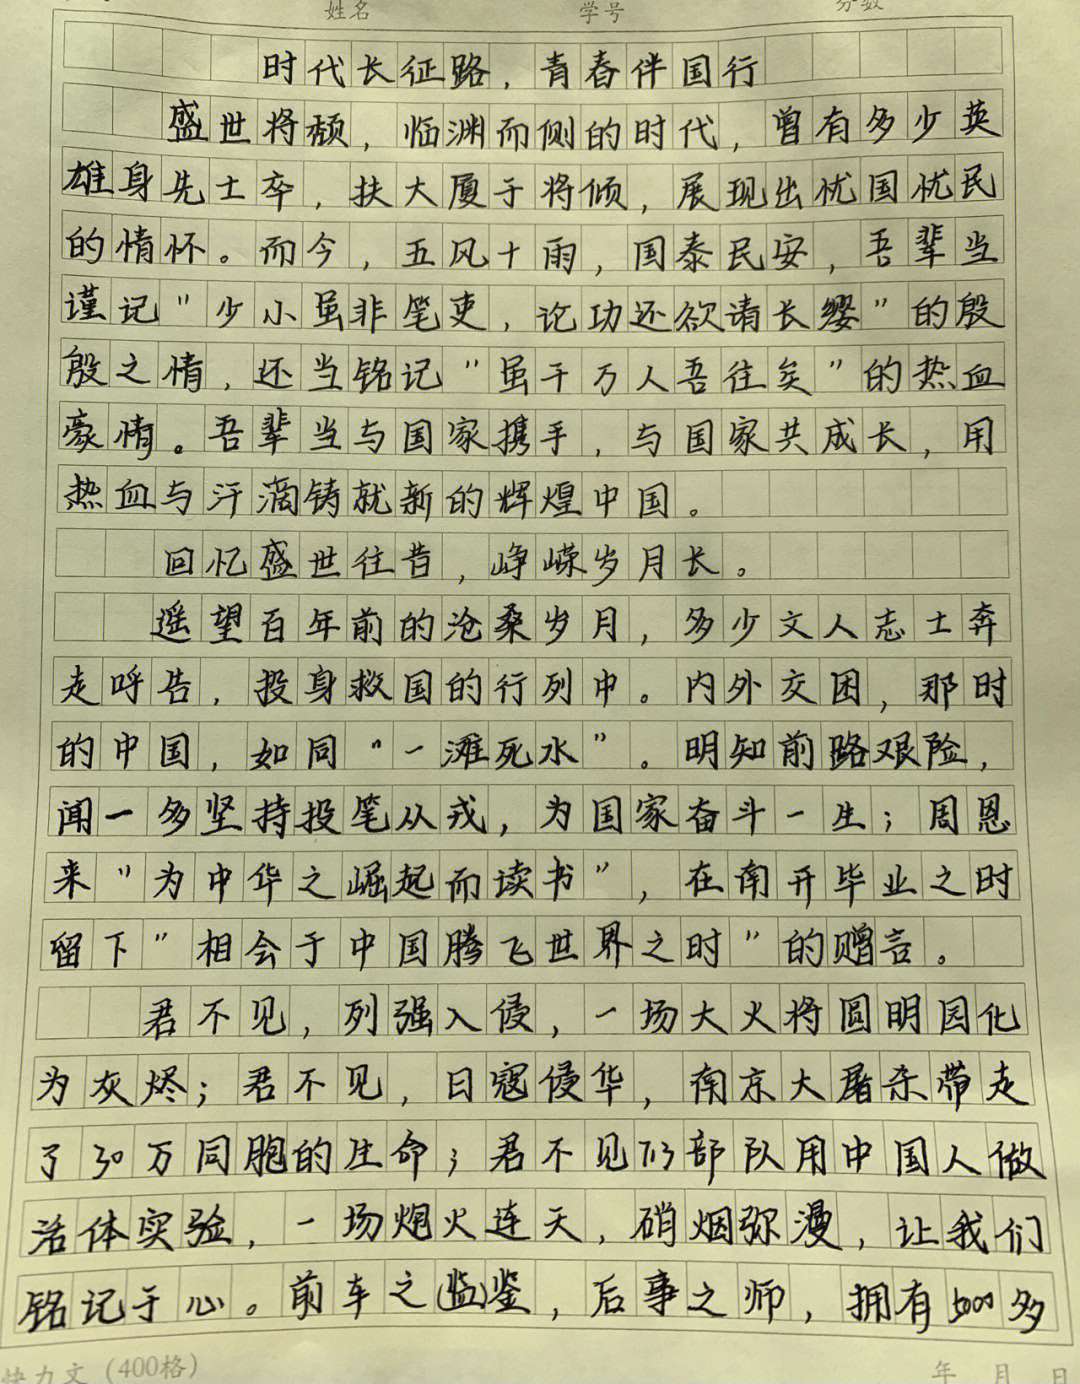 姓名 学号 分数
时代长征路，青春伴国行
盛世将颓，临渊而侧的时代，曾有多少英
雄身先士卒，扶大厦于将倾，展现出忧国忧民
的情怀。而今，五风十雨，国泰民安，吾辈当
谨记"少小虽非笔吏，论功还欲请长缨"的殷
殷之情，还当铭记"虽千万人吾往矣"的热血
豪情。吾辈当与国家携手，与国家共成长，用
热血与汗滴铸就新的辉煌中国。
回忆盛世往昔，峥嵘岁月长。
遥望百年前的沧桑岁月，多少文人志士奔
走呼告，投身救国的行列中。内外交困，那时
的中国，如同"一滩死水"。明知前路艰险，
闻一多坚持投笔从戎，为国家奋斗一生；周恩
来"为中华之崛起而读书"，在南开毕业之时
留下"相会于中国腾飞世界之时"的赠言。
君不见，列强入侵，一场大火将圆明园化
为灰烬；君不见，日寇侵华，南京大屠杀带走
了30万同胞的生命；君不见713部队用中国人做
活体实验，一场炮火连天，硝烟弥漫，让我们
铭记于心。前车之鉴，后事之师，拥有5000多
快力文（400格） 年 月 日